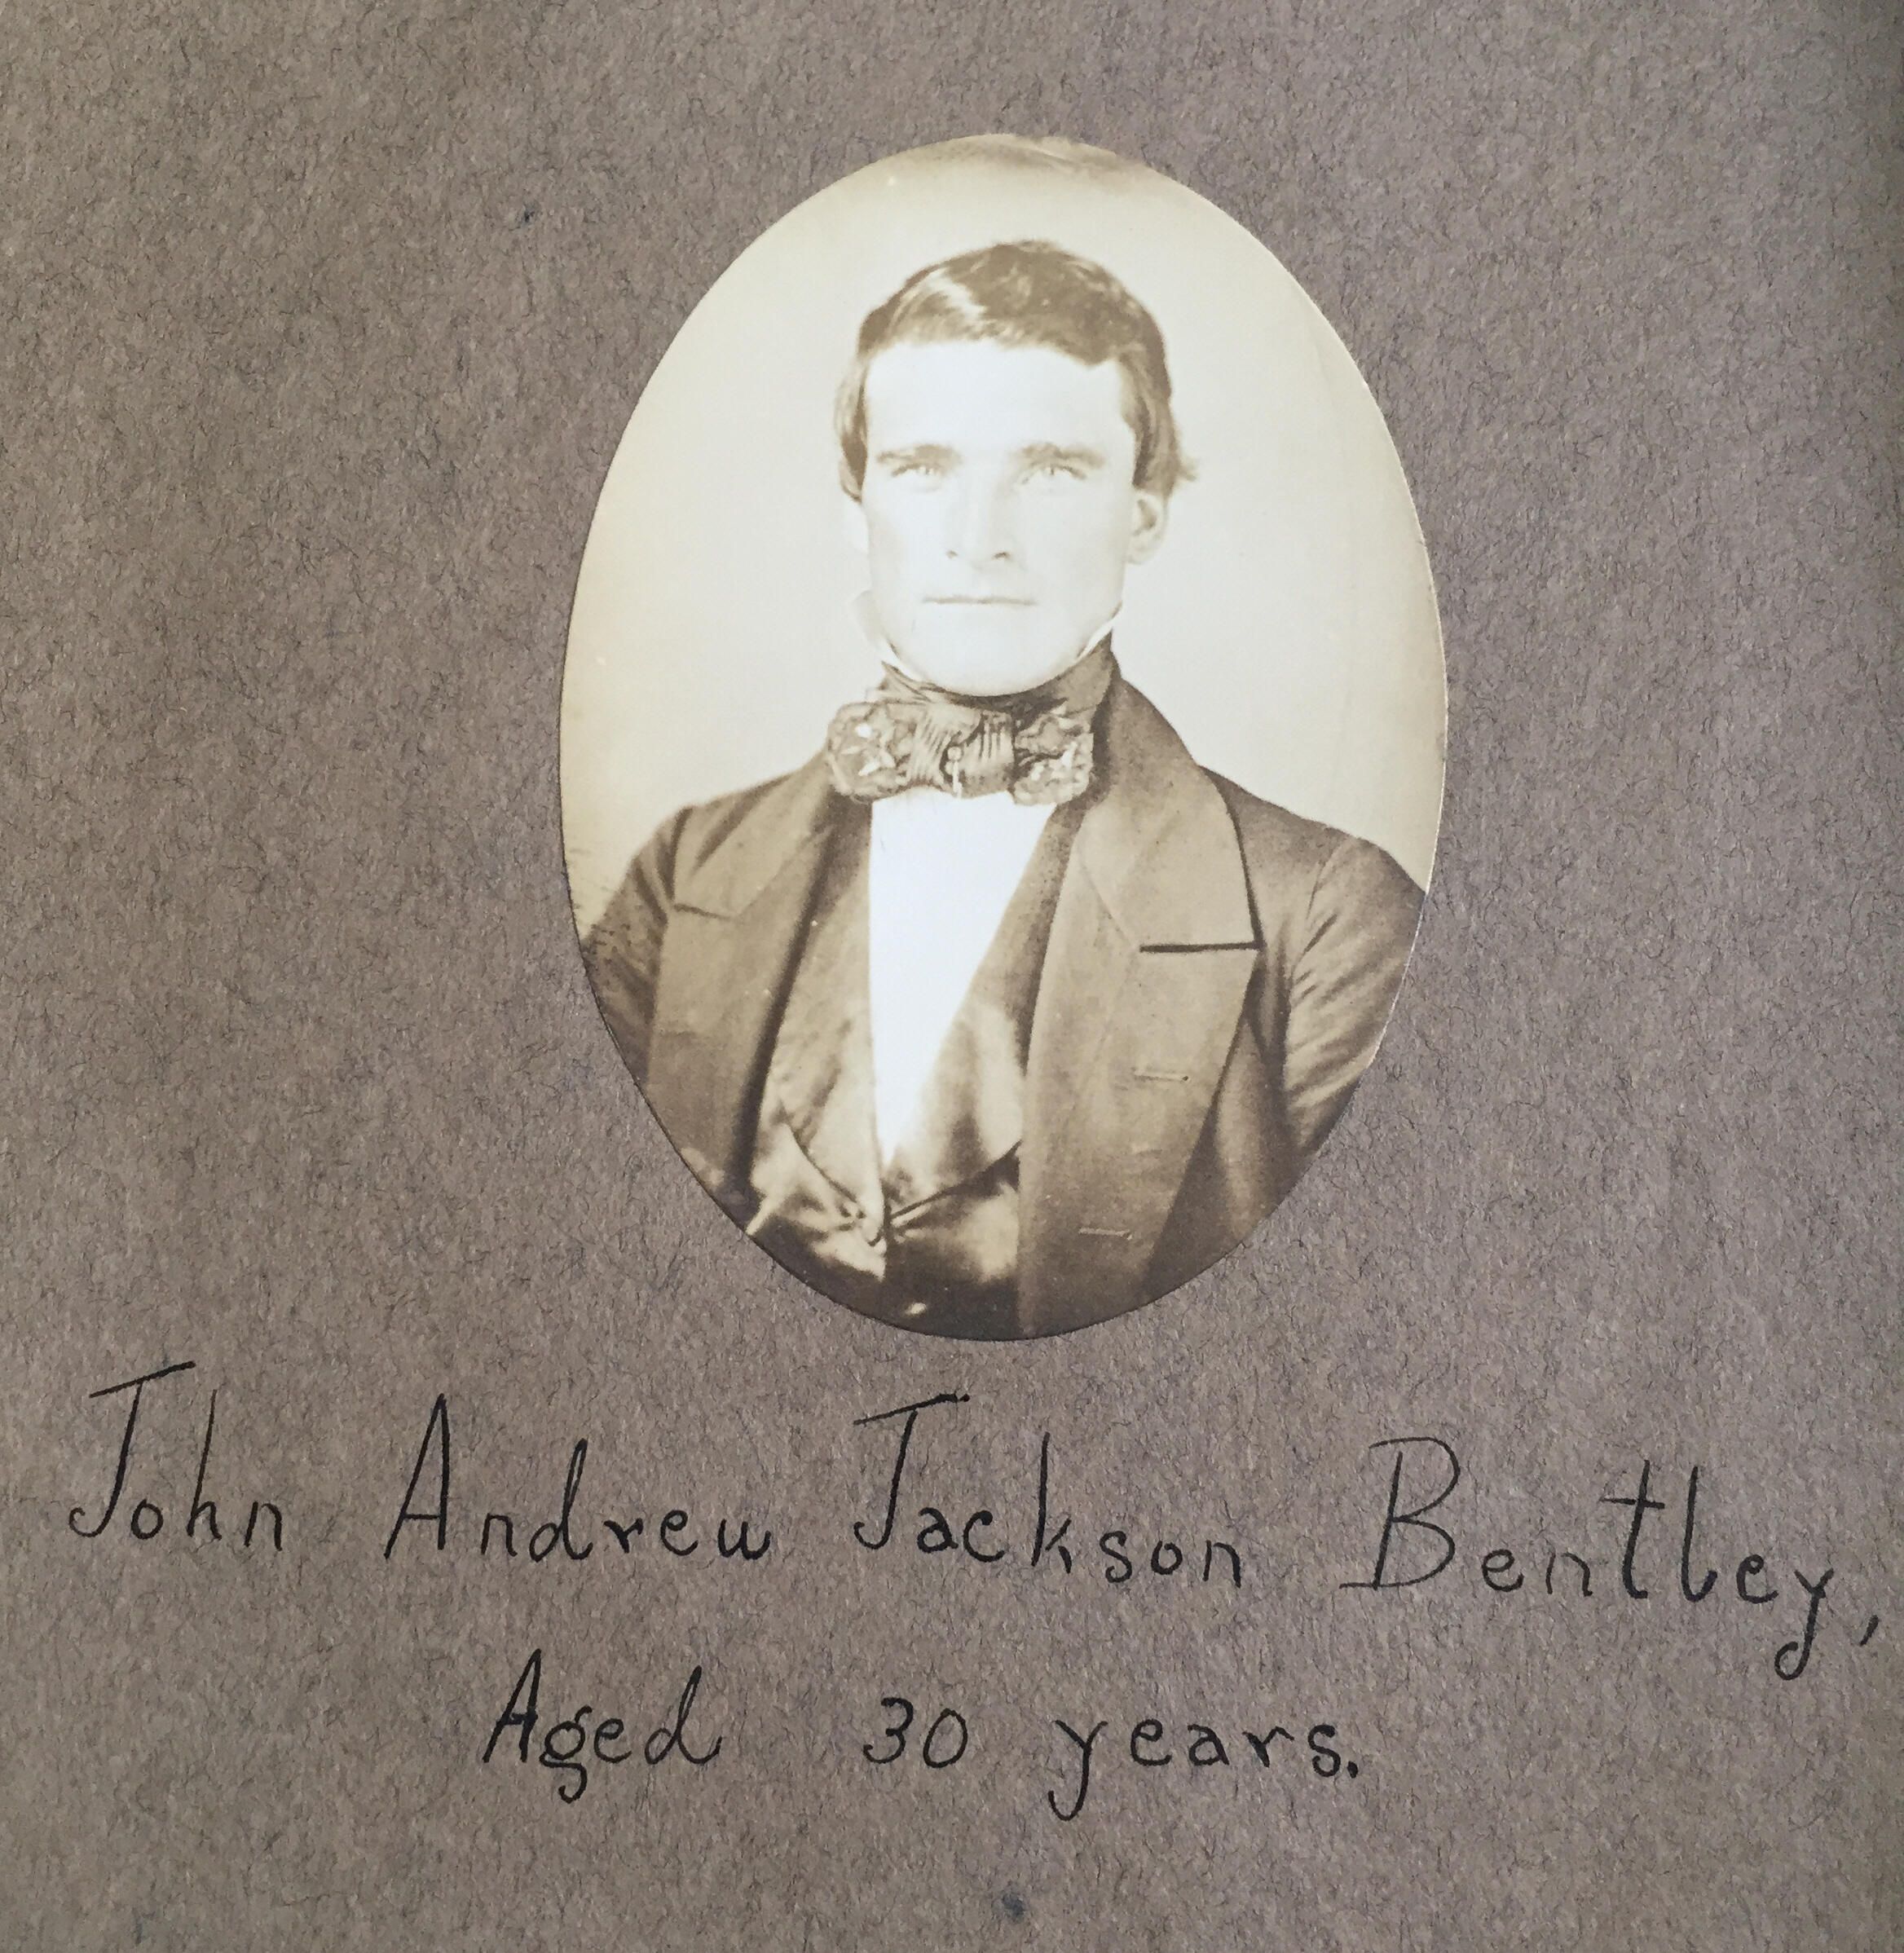 John Andrew Jackson Bentley,
Aged 30 years.